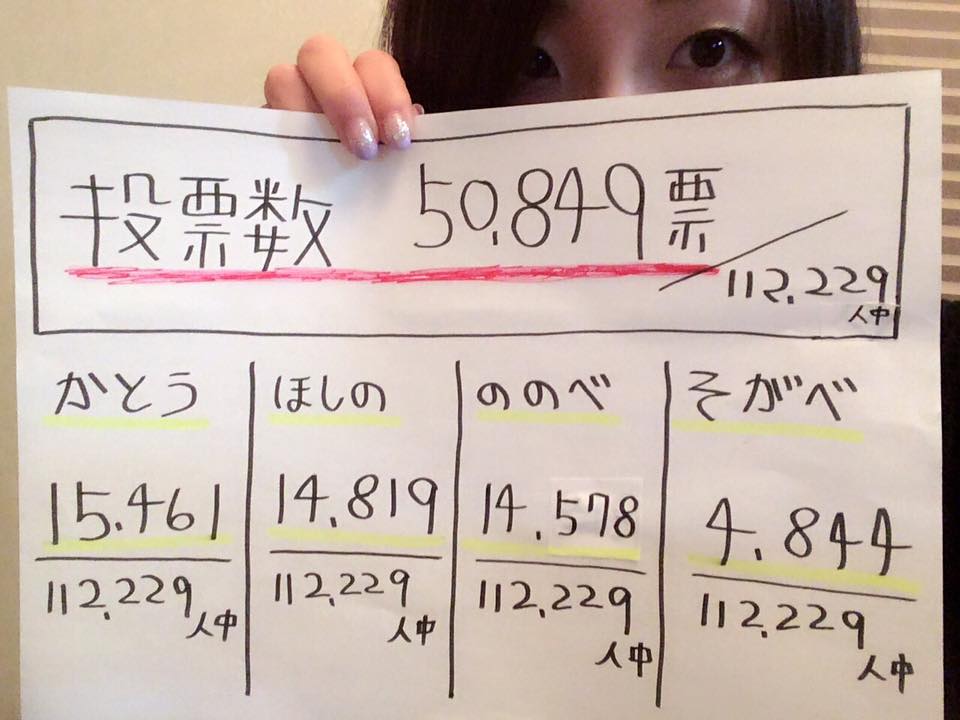 投票数 50,849票
112,229
人中
かとう
15,461
112,229
人中
ほしの
14,819
112,229
人中
ののべ
14,578
112,229
人中
そがべ
4,844
112,229
人中